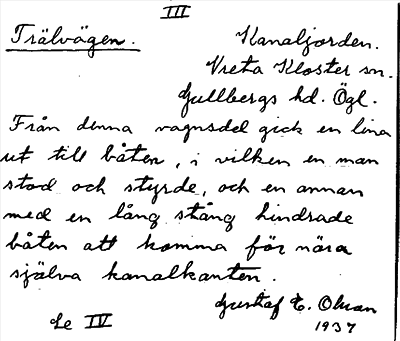 III
Trälvägen.
Kanaljorden.
Vreta Kloster sn.
Gullbergs hd. Ögl.
Från denna vagnsdel gick en lina
ut till båten, i vilken en man
stod och styrde, och en annan
med en lång stång hindrade
båten att komma för nära
själva kanalkanten.
Gustaf E. Olman
Se IV
1937